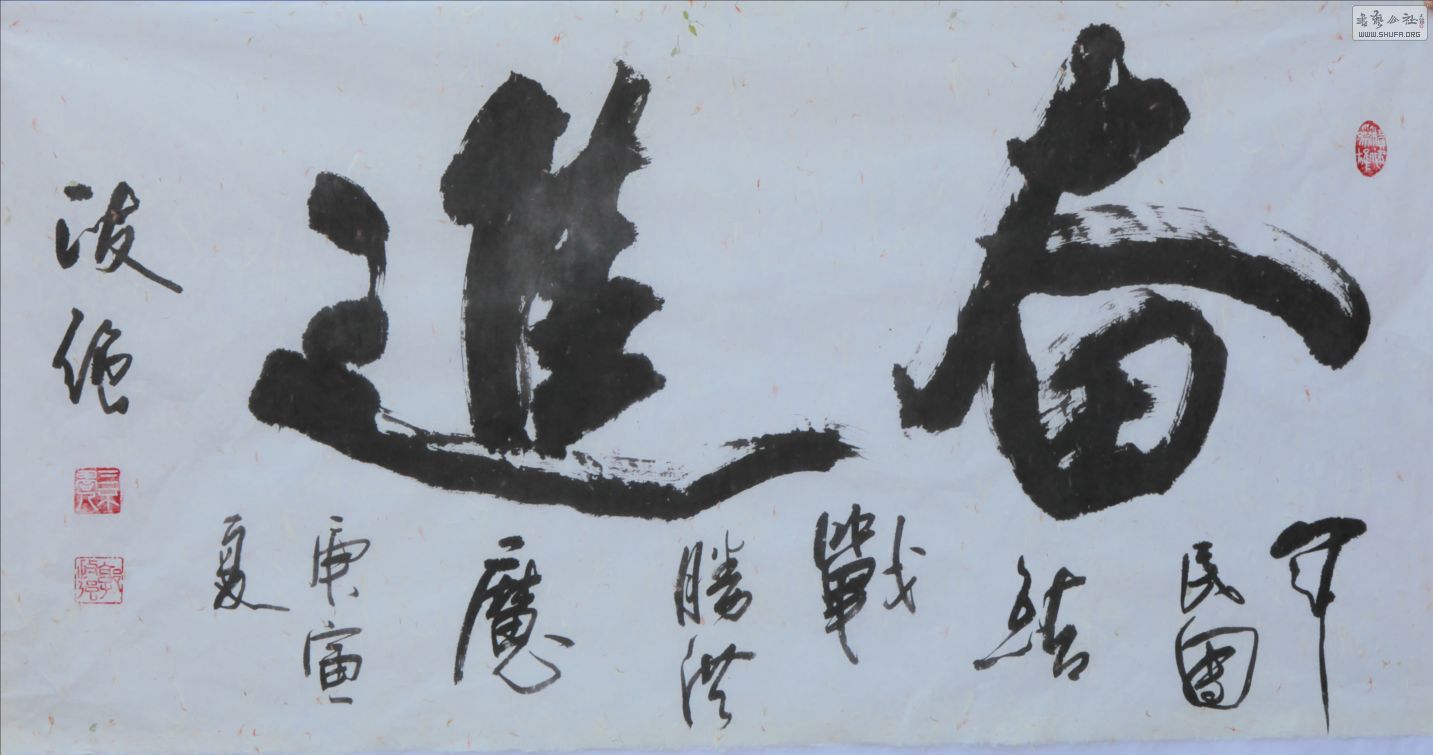 奋進
军
民團
結
戰
勝洪
魔
庚寅
夏
波强
書藝公社
WWW.SHUFA.ORG